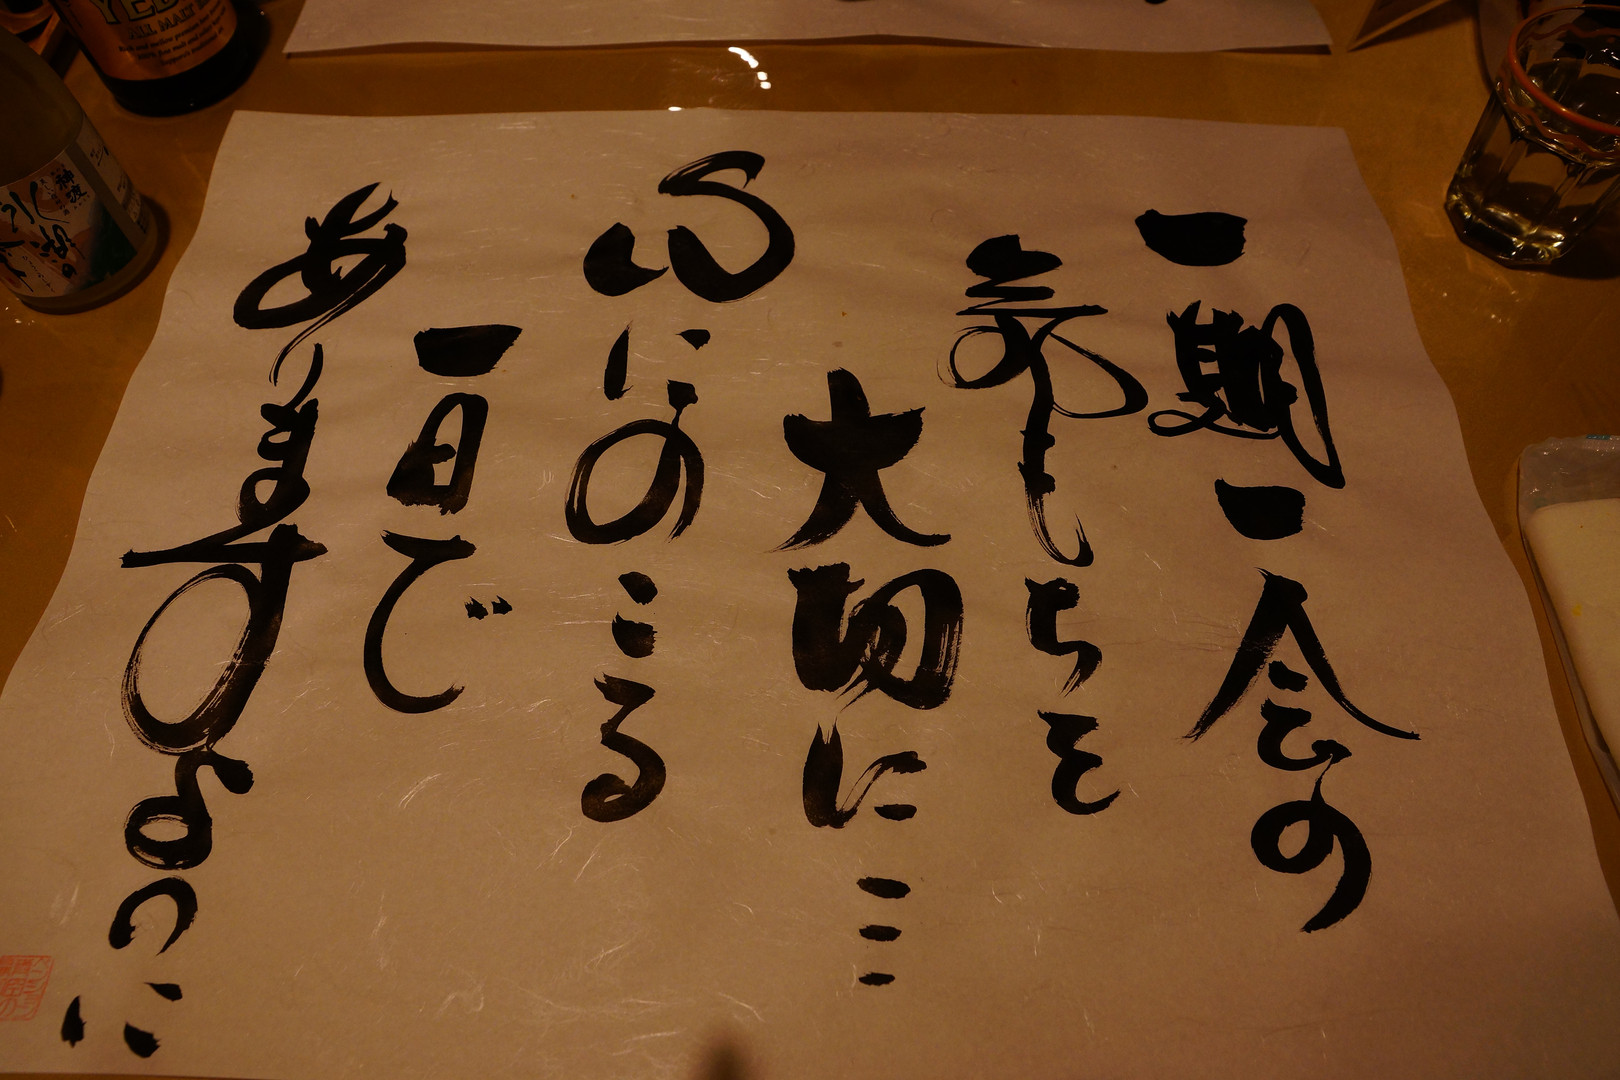 一期一会の
気もちを
大切に…
心にのこる
一日で
ありますように
YEB
ALL MALT
神渡